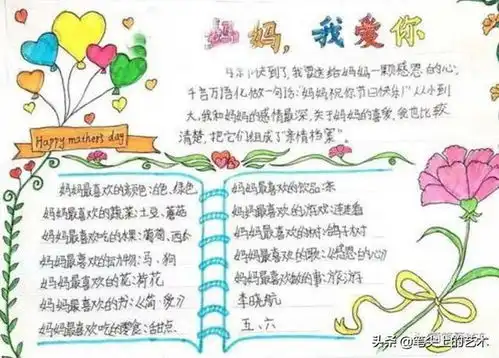 妈妈，我爱你
Happy mother's day
母亲节快到了,我要送给妈妈一颗感恩的心。
千言万语化做一句话:"妈妈祝你节日快乐!"从小到
大,我和妈妈的感情最深。关于妈妈的喜爱,我也比较
清楚,把它们组成了"亲情档案"。
妈妈最喜欢的颜色:白色、绿色
妈妈最喜欢的蔬菜:土豆、蘑菇
妈妈最喜欢吃的水果:葡萄、西瓜
妈妈最喜欢的动物:马、狗
妈妈最喜欢的花:荷花
妈妈最喜欢的书:《简·爱》
妈妈最喜欢吃的零食:甜点
妈妈最喜欢的饮品:茶
妈妈最喜欢的游戏:连连看
妈妈最喜欢的树:鸽子树
妈妈最喜欢的歌:《感恩的心》
妈妈最喜欢做的事:旅游
李晓航
五、六
头条 @笔尖上的艺术